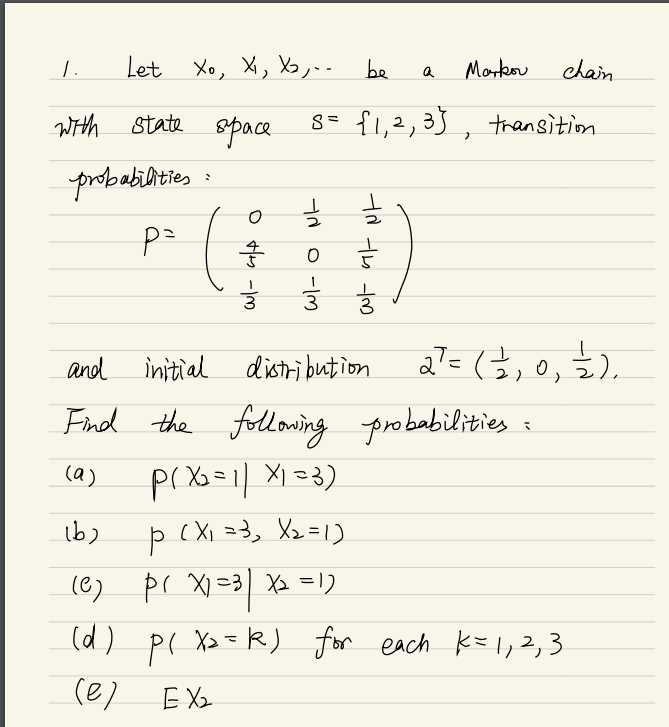 1. Let X₀, X₁, X₂,... be a Markov chain
with state space S = {1,2,3}, transition
probabilities:
P = ( 0 1/2 1/2
4/5 0 1/5
1/3 1/3 1/3 )
and initial distribution 2ᵀ = (1/2, 0, 1/2).
Find the following probabilities:
(a) P(X₂=1|X₁=3)
(b) P(X₁=3, X₂=1)
(c) P(X₁=3|X₂=1)
(d) P(X₂=k) for each k=1,2,3
(e) EX₂